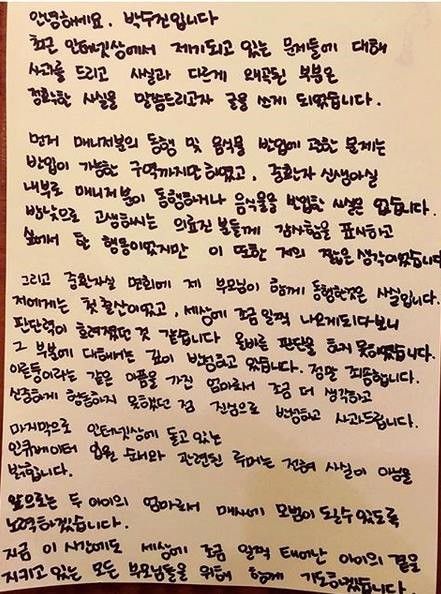 안녕하세요. 박수진입니다
최근 인터넷상에서 제기되고 있는 문제들에 대해
사과를 드리고 사실과 다르게 왜곡된 부분은
정확한 사실을 말씀드리고자 글을 쓰게 되었습니다.
먼저 매니저분의 동행 및 음식물 반입에 관한 문제는
반입이 가능한 구역까지만 하였고, 중환자 신생아실
내부로 매니저분이 동행하거나 음식물을 반입한 사실은 없습니다.
밤낮으로 고생하시는 의료진 분들께 감사함을 표시하고
싶어서 한 행동이였지만 이 또한 저의 짧은 생각이였습니다
그리고 중환자실 면회에 제 부모님이 함께 동행한것은 사실입니다.
저에게는 첫 출산이였고, 세상에 조금 일찍 나오게되다보니
판단력이 흐려졌던 것 같습니다 올바른 판단을 하지 못하였습니다.
그 부분에 대해서는 깊이 반성하고 있습니다. 정말 죄송합니다.
이른둥이라는 같은 아픔을 가진 엄마로서 조금 더 생각하고
신중하게 행동하지 못했던 점 진심으로 반성하고 사과드립니다.
마지막으로 인터넷상에 돌고 있는
인큐베이터 입원 순서와 관련된 루머는 전혀 사실이 아님을
밝힙니다.
앞으로는 두 아이의 엄마로서 매사에 모범이 되알수있도록
노력하겠습니다.
지금 이 시간에도 세상에 조금 일찍 태어난 아이의 곁을
지키고 있는 모든 부모님들을 위해 함께 기도하겠습니다.